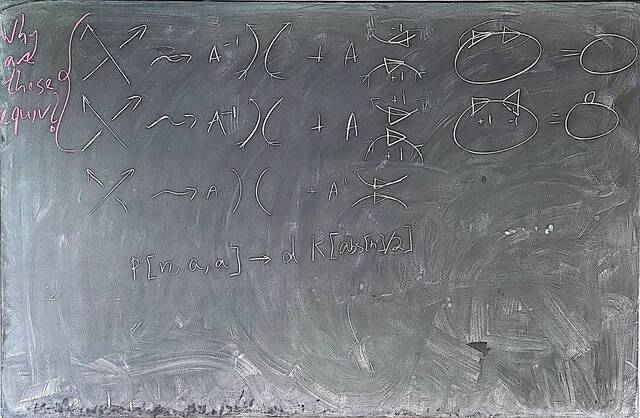 Why are these equiv?
⤳ A⁻¹ )( + A
=
⤳ A⁻¹ )( + A
+1 -1 =
⤳ A )( + A⁻¹
P[n, a, a] → d K[abs[n]/2]